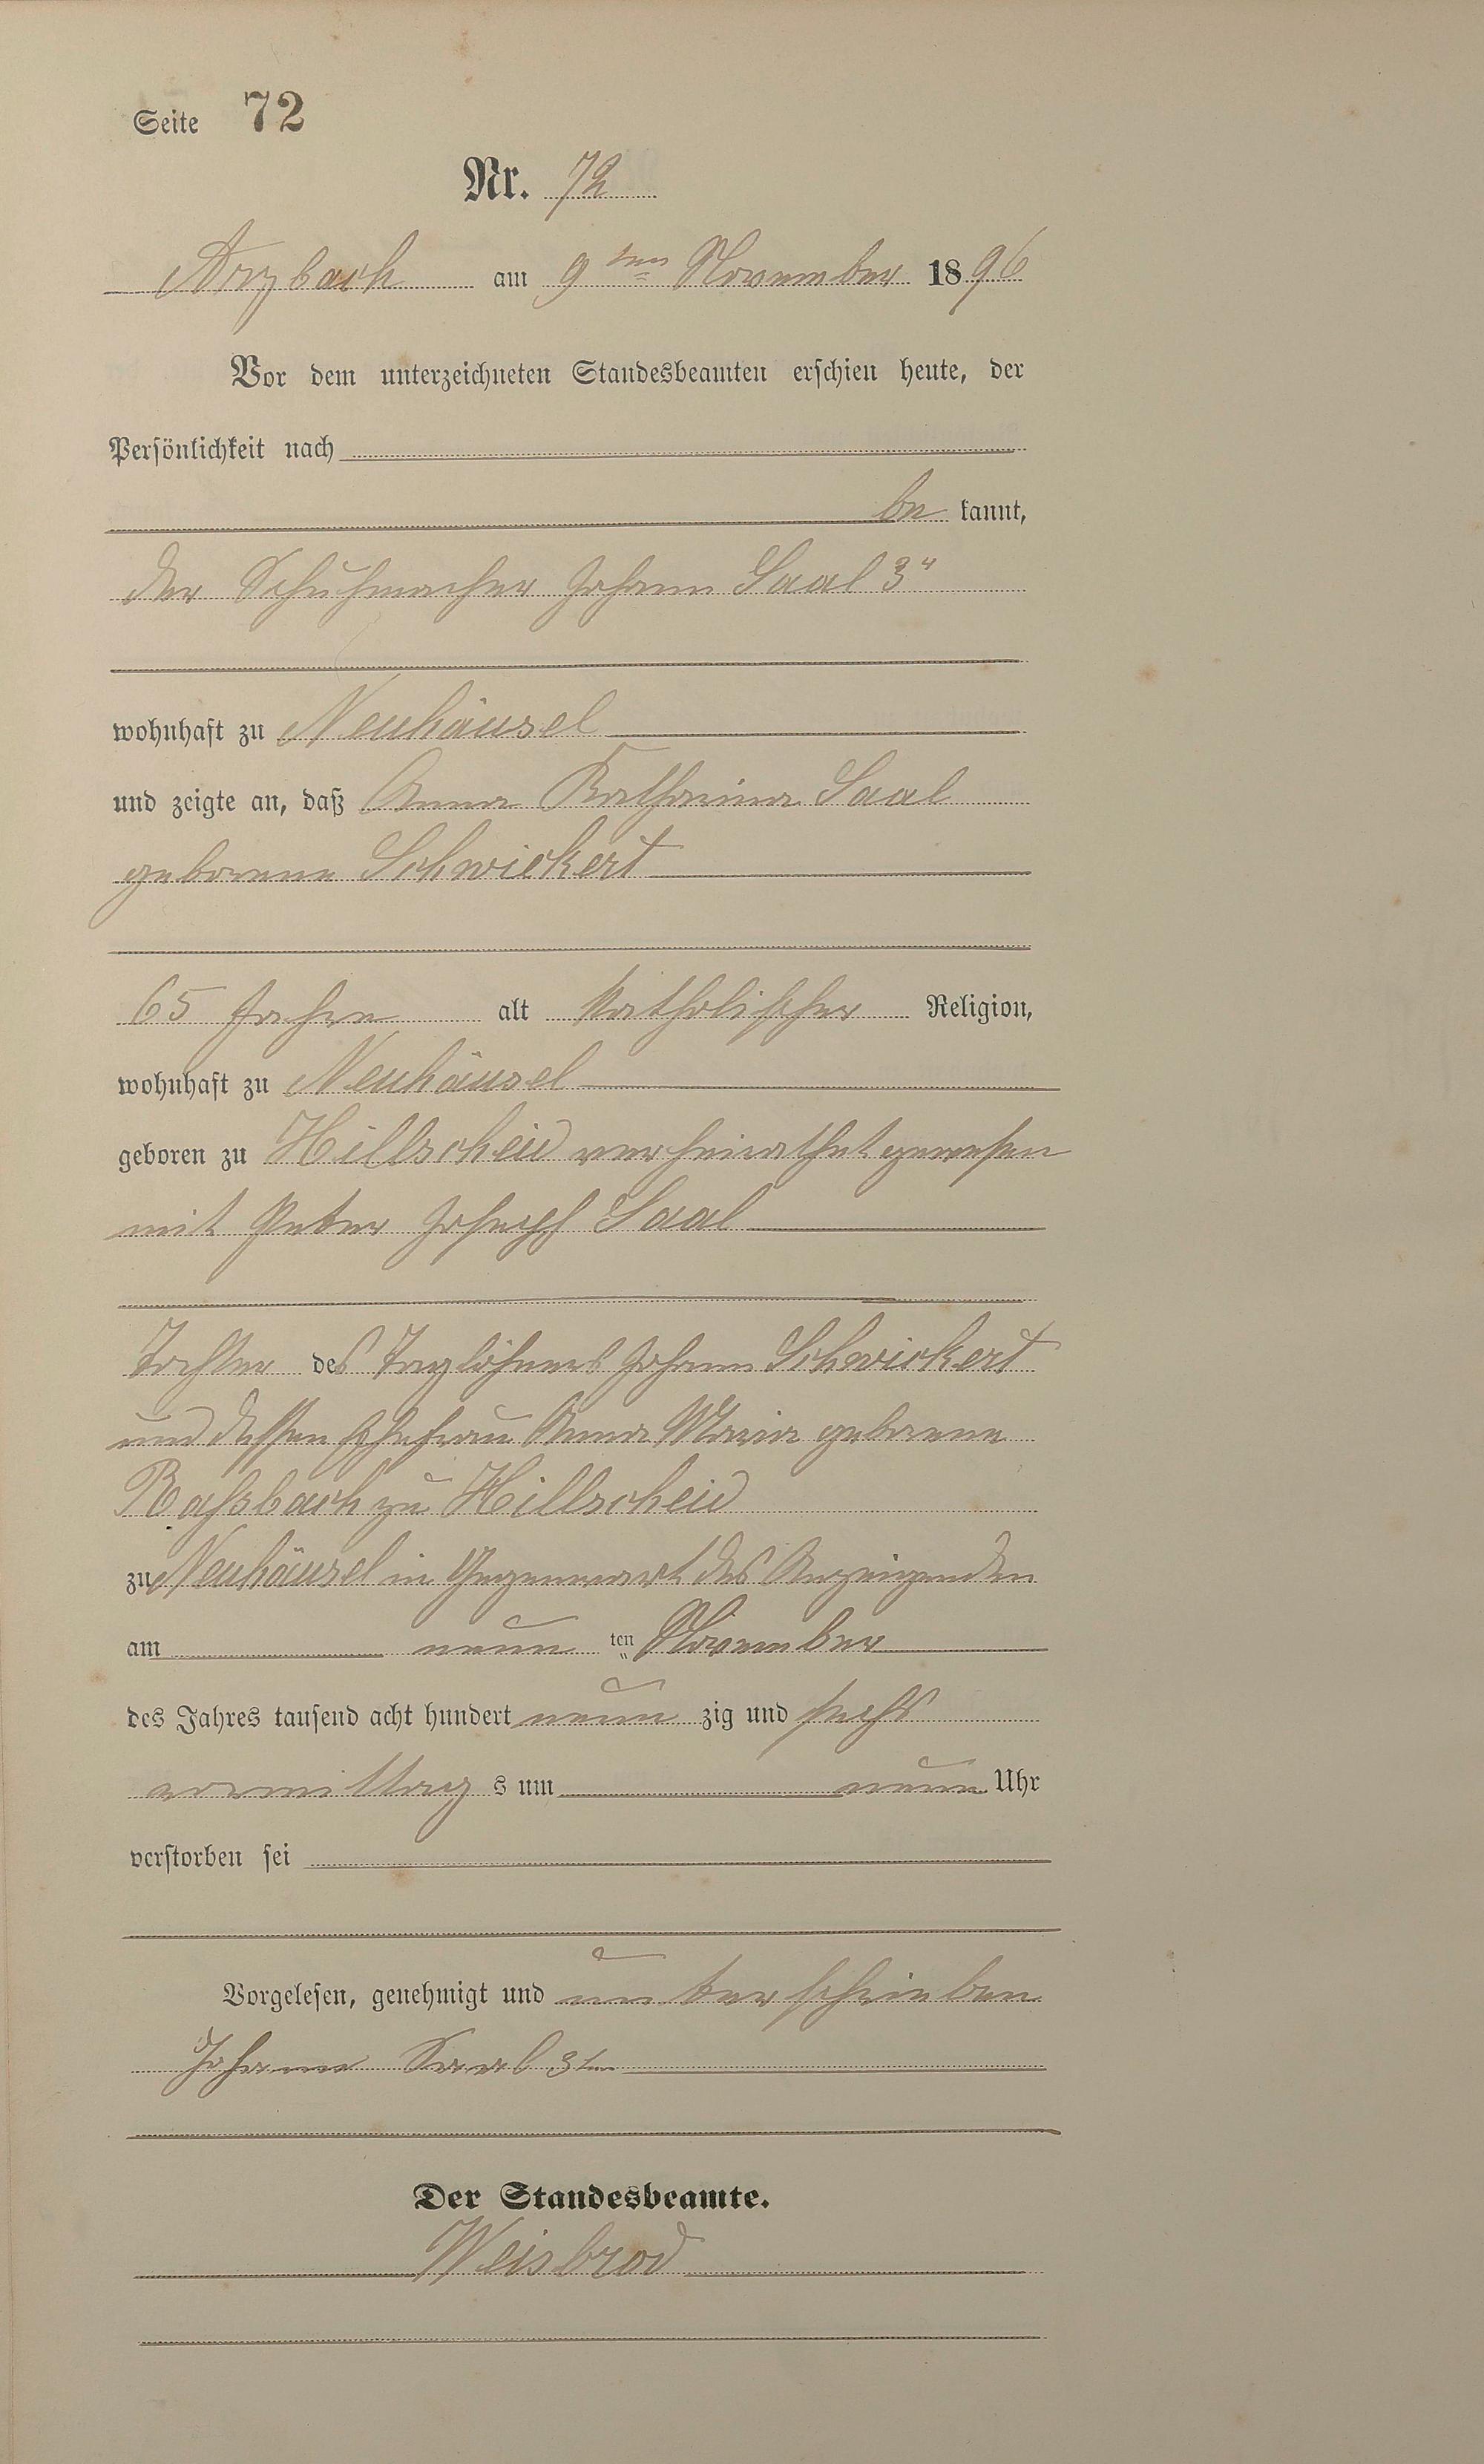 Seite 72
Nr. 72
Arzbach am 9ten November 1896
Vor dem unterzeichneten Standesbeamten erschien heute, der
Persönlichkeit nach
be kannt,
der Schuhmacher Johann Saal 3"
wohnhaft zu Neuhäusel
und zeigte an, daß Anna Katharina Saal
geborene Schwickert
65 Jahre alt katholischer Religion,
wohnhaft zu Neuhäusel
geboren zu Hillscheid verheirathet gewesen
mit Peter Joseph Saal
Tochter des Taglöhners Johann Schwickert
und dessen Ehefrau Anna Maria geborene
Raßbach zu Hillscheid
zu Neuhäusel in Gegenwart des Anzeigenden
am neun ten November
des Jahres tausend acht hundert neun zig und sechs
vormittag s um neun Uhr
verstorben sei
Vorgelesen, genehmigt und unterschrieben
Johann Saal 3ter
Der Standesbeamte.
Weisbrod